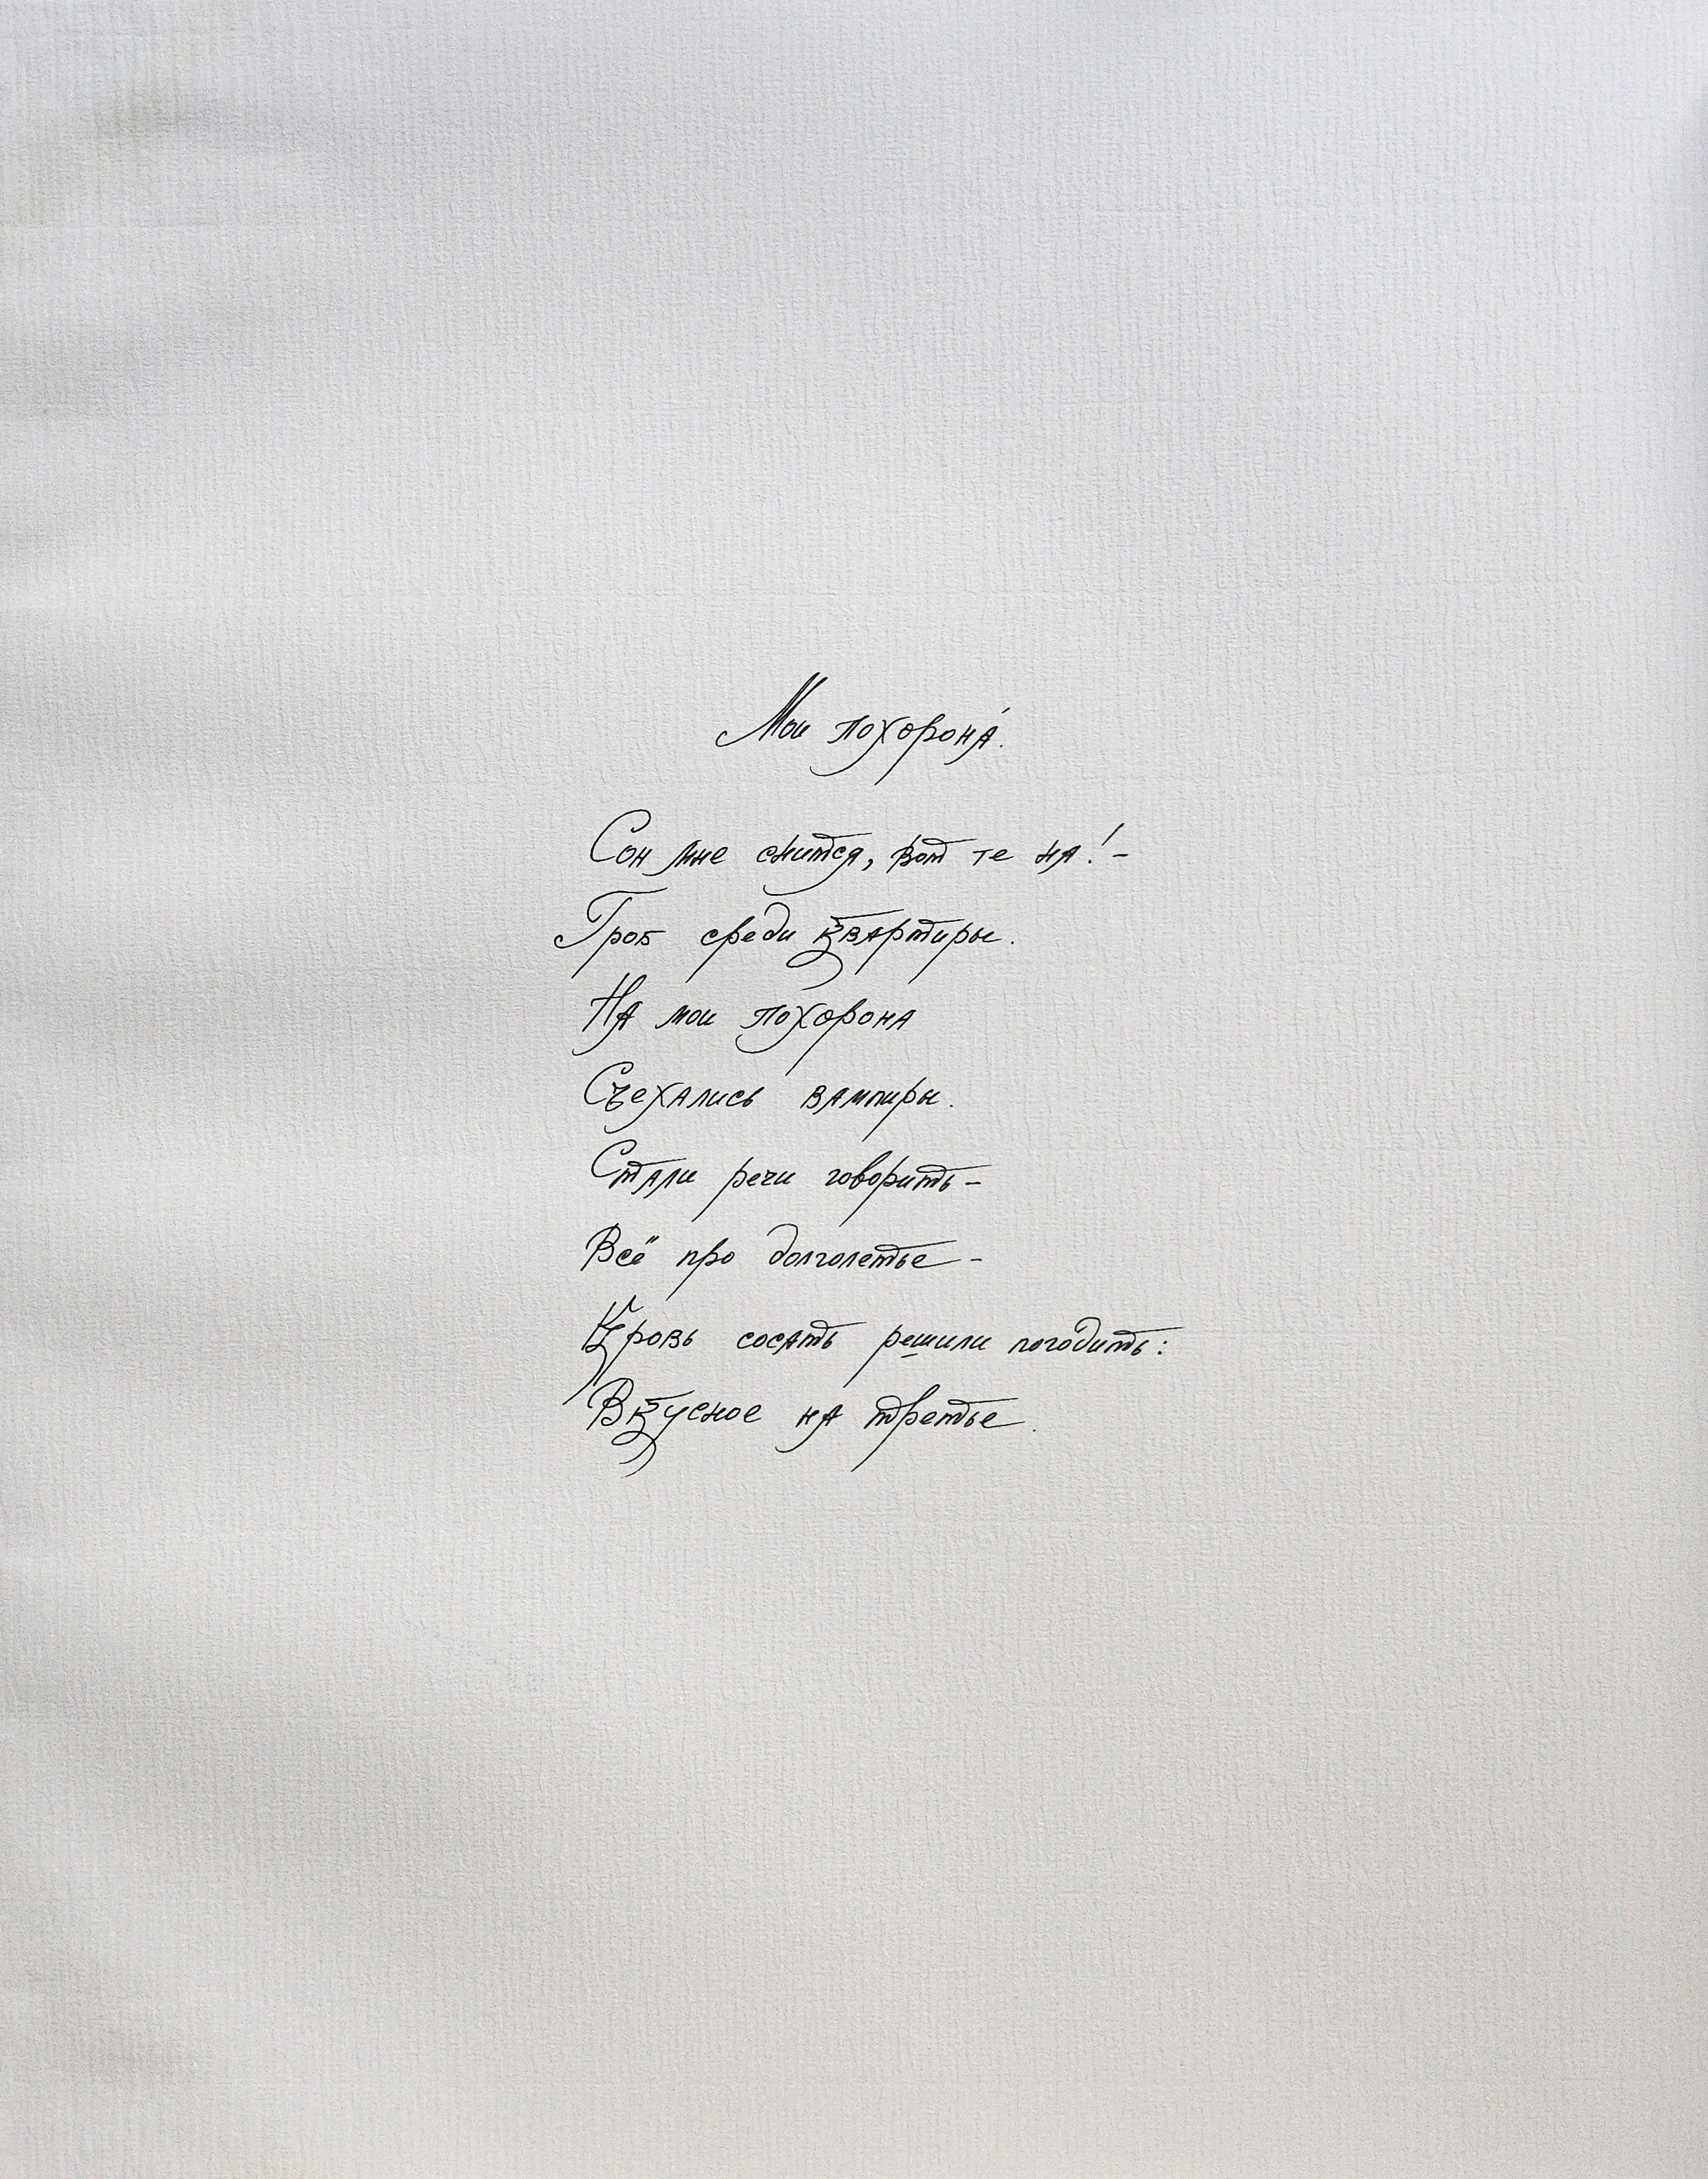 Мои похорона́.
Сон мне снится, вот те на! –
Гроб среди квартиры.
На мои похорона
Съехались вампиры.
Стали речи говорить –
Всё про долголетье –
Кровь сосать решили погодить:
Вкусное на третье.